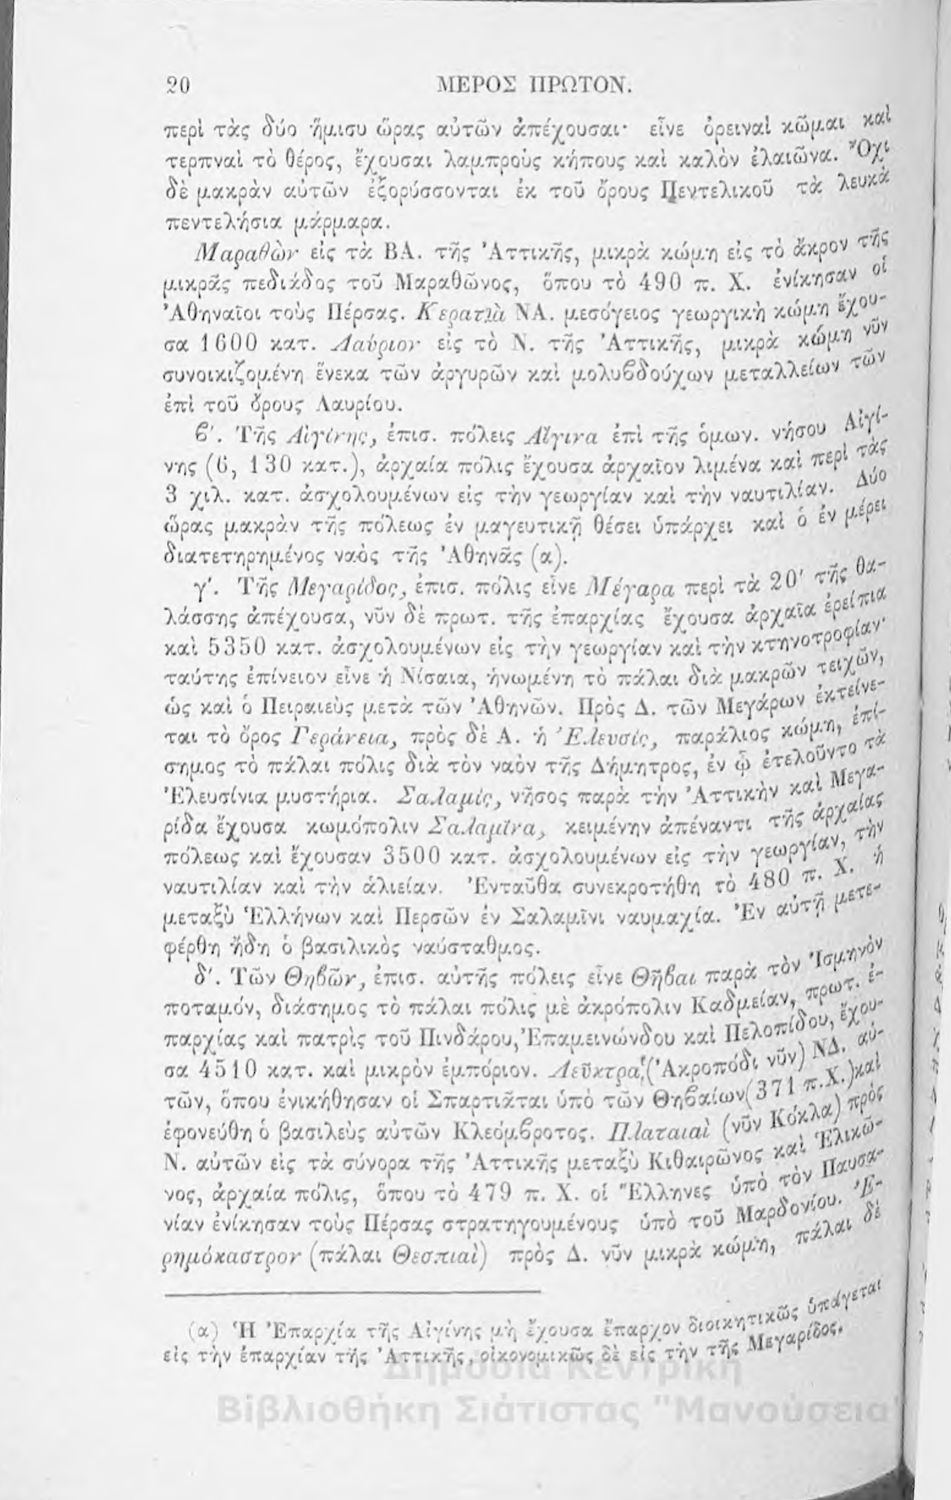 20 ΜΕΡΟΣ ΠΡΩΤΟΝ.
περὶ τὰς δύο ἥμισυ ὥρας αὐτῶν ἀπέχουσαι· εἶνε ὀρειναὶ κῶμαι καὶ
τερπναὶ τὸ θέρος, ἔχουσαι λαμπροὺς κήπους καὶ καλὸν ἐλαιῶνα. Ὄχι
δὲ μακρὰν αὐτῶν ἐξορύσσονται ἐκ τοῦ ὄρους Πεντελικοῦ τὰ λευκὰ
πεντελήσια μάρμαρα.
Μαραθὼν εἰς τὰ ΒΑ. τῆς Ἀττικῆς, μικρὰ κώμη εἰς τὸ ἄκρον τῆς
μικρᾶς πεδιάδος τοῦ Μαραθῶνος, ὅπου τὸ 490 π. Χ. ἐνίκησαν οἱ
Ἀθηναῖοι τοὺς Πέρσας. Κερατιὰ ΝΑ. μεσόγειος γεωργικὴ κώμη ἔχου-
σα 1600 κατ. Λαύριον εἰς τὸ Ν. τῆς Ἀττικῆς, μικρὰ κώμη νῦν
συνοικιζομένη ἕνεκα τῶν ἀργυρῶν καὶ μολυβδούχων μεταλλείων τῶν
ἐπὶ τοῦ ὄρους Λαυρίου.
β'. Τῆς Αἰγίνης, ἐπισ. πόλεις Αἴγινα ἐπὶ τῆς ὁμων. νήσου Αἰγί-
νης (6, 130 κατ.), ἀρχαία πόλις ἔχουσα ἀρχαῖον λιμένα καὶ περὶ τὰς
3 χιλ. κατ. ἀσχολουμένων εἰς τὴν γεωργίαν καὶ τὴν ναυτιλίαν. Δύο
ὥρας μακρὰν τῆς πόλεως ἐν μαγευτικῇ θέσει ὑπάρχει καὶ ὁ ἐν μέρει
διατετηρημένος ναὸς τῆς Ἀθηνᾶς (α).
γ'. Τῆς Μεγαρίδος, ἐπισ. πόλις εἶνε Μέγαρα περὶ τὰ 20' τῆς θα-
λάσσης ἀπέχουσα, νῦν δὲ πρωτ. τῆς ἐπαρχίας ἔχουσα ἀρχαῖα ἐρείπια
καὶ 5350 κατ. ἀσχολουμένων εἰς τὴν γεωργίαν καὶ τὴν κτηνοτροφίαν·
ταύτης ἐπίνειον εἶνε ἡ Νίσαια, ἡνωμένη τὸ πάλαι διὰ μακρῶν τειχῶν,
ὡς καὶ ὁ Πειραιεὺς μετὰ τῶν Ἀθηνῶν. Πρὸς Δ. τῶν Μεγάρων ἐκτείνε-
ται τὸ ὄρος Γεράνεια, πρὸς δὲ Α. ἡ Ἐλευσίς, παράλιος κώμη, ἐπί-
σημος τὸ πάλαι πόλις διὰ τὸν ναὸν τῆς Δήμητρος, ἐν ᾧ ἐτελοῦντο τὰ
Ἐλευσίνια μυστήρια. Σαλαμίς, νῆσος παρὰ τὴν Ἀττικὴν καὶ Μεγα-
ρίδα ἔχουσα κωμόπολιν Σαλαμῖνα, κειμένην ἀπέναντι τῆς ἀρχαίας
πόλεως καὶ ἔχουσαν 3500 κατ. ἀσχολουμένων εἰς τὴν γεωργίαν, τὴν
ναυτιλίαν καὶ τὴν ἁλιείαν. Ἐνταῦθα συνεκροτήθη τὸ 480 π. Χ. ἡ
μεταξὺ Ἑλλήνων καὶ Περσῶν ἐν Σαλαμῖνι ναυμαχία. Ἐν αὐτῇ μετε-
φέρθη ἤδη ὁ βασιλικὸς ναύσταθμος.
δ'. Τῶν Θηβῶν, ἐπισ. αὐτῆς πόλεις εἶνε Θῆβαι παρὰ τὸν Ἰσμηνὸν
ποταμόν, διάσημος τὸ πάλαι πόλις μὲ ἀκρόπολιν Καδμείαν, πρωτ. ἐ-
παρχίας καὶ πατρὶς τοῦ Πινδάρου, Ἐπαμεινώνδου καὶ Πελοπίδου, ἔχου-
σα 4510 κατ. καὶ μικρὸν ἐμπόριον. Λεῦκτρα,(Ἀκροπόδι νῦν) ΝΔ. αὐ-
τῶν, ὅπου ἐνικήθησαν οἱ Σπαρτιᾶται ὑπὸ τῶν Θηβαίων(371 π.Χ.)καὶ
ἐφονεύθη ὁ βασιλεὺς αὐτῶν Κλεόμβροτος. Πλαταιαὶ (νῦν Κόκλα) πρὸς
Ν. αὐτῶν εἰς τὰ σύνορα τῆς Ἀττικῆς μεταξὺ Κιθαιρῶνος καὶ Ἑλικῶ-
νος, ἀρχαία πόλις, ὅπου τὸ 479 π. Χ. οἱ Ἕλληνες ὑπὸ τὸν Παυσα-
νίαν ἐνίκησαν τοὺς Πέρσας στρατηγουμένους ὑπὸ τοῦ Μαρδονίου. Ἐ-
ρημόκαστρον (πάλαι Θεσπιαὶ) πρὸς Δ. νῦν μικρὰ κώμη, πάλαι δὲ
(α) Ἡ Ἐπαρχία τῆς Αἰγίνης μὴ ἔχουσα ἔπαρχον διοικητικῶς ὑπάγεται
εἰς τὴν ἐπαρχίαν τῆς Ἀττικῆς, οἰκονομικῶς δὲ εἰς τὴν τῆς Μεγαρίδος.
Δημόσια Κεντρική
Βιβλιοθήκη Σιάτιστας "Μανούσεια"